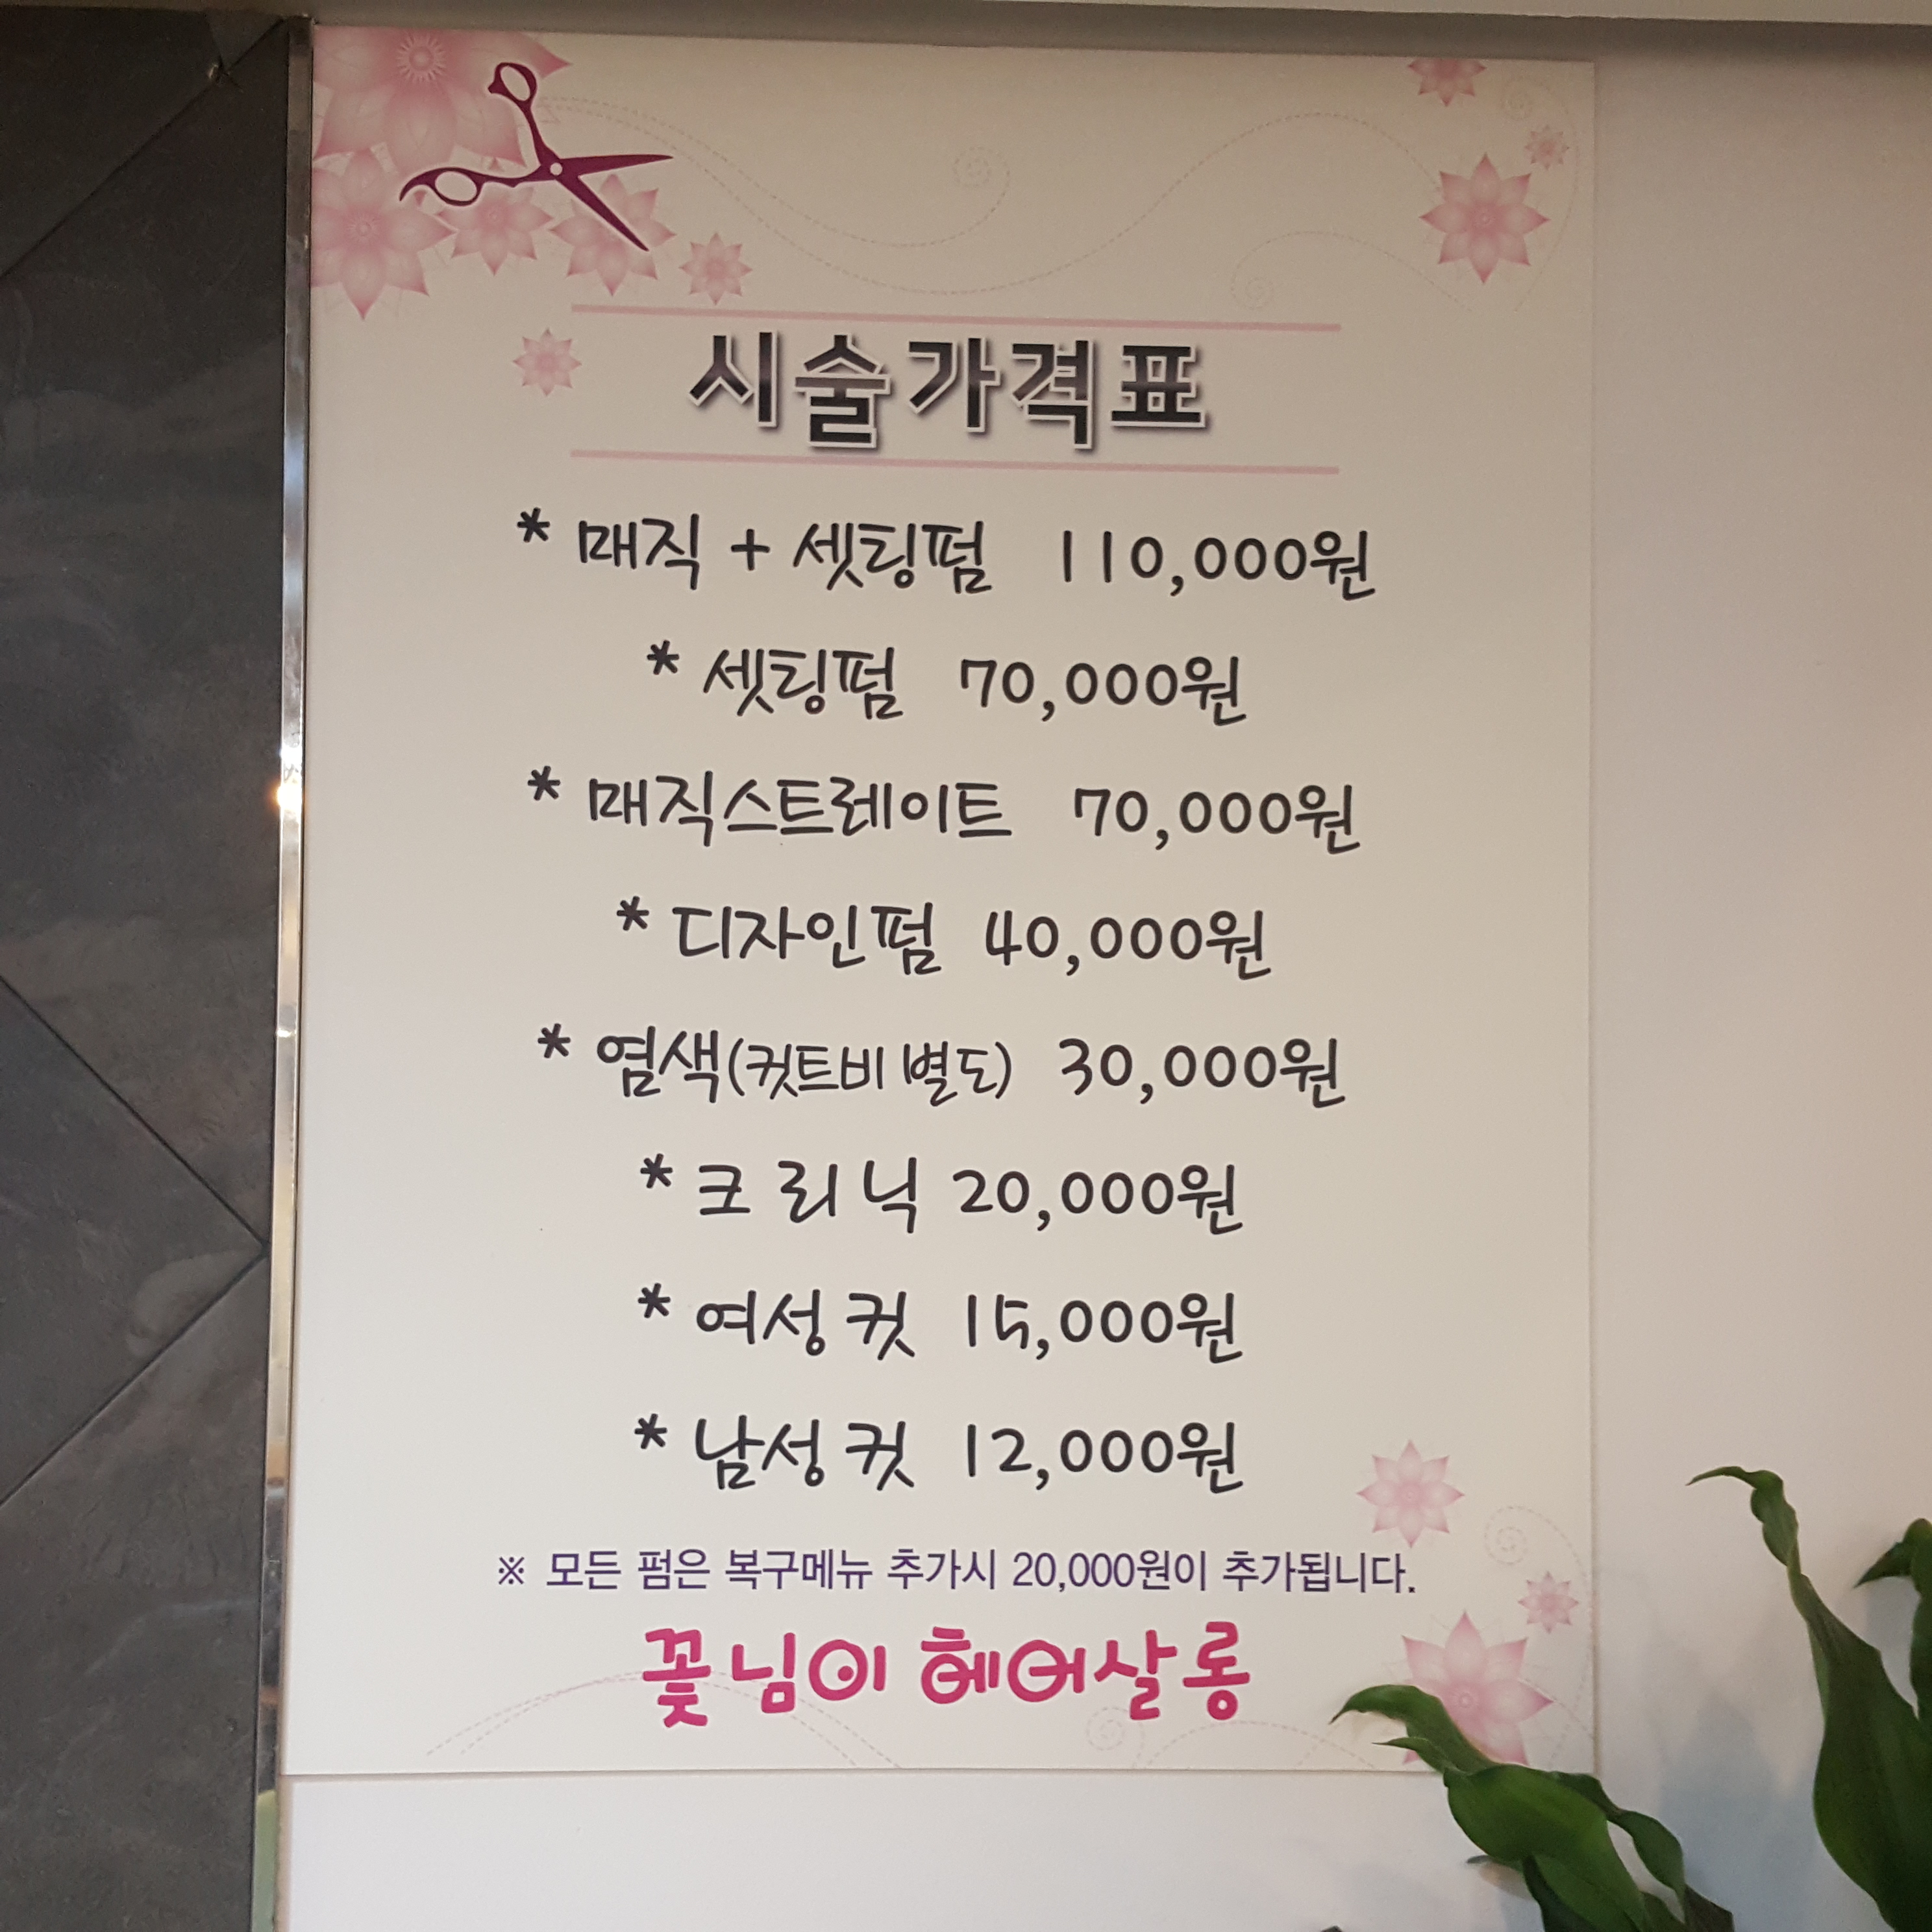 시술가격표
* 매직 + 셋팅펌 110,000원
* 셋팅펌 70,000원
* 매직스트레이트 70,000원
* 디자인펌 40,000원
* 염색(컷트비 별도) 30,000원
* 크리닉 20,000원
* 여성컷 15,000원
* 남성컷 12,000원
※ 모든 펌은 복구메뉴 추가시 20,000원이 추가됩니다.
꽃님이 헤어살롱